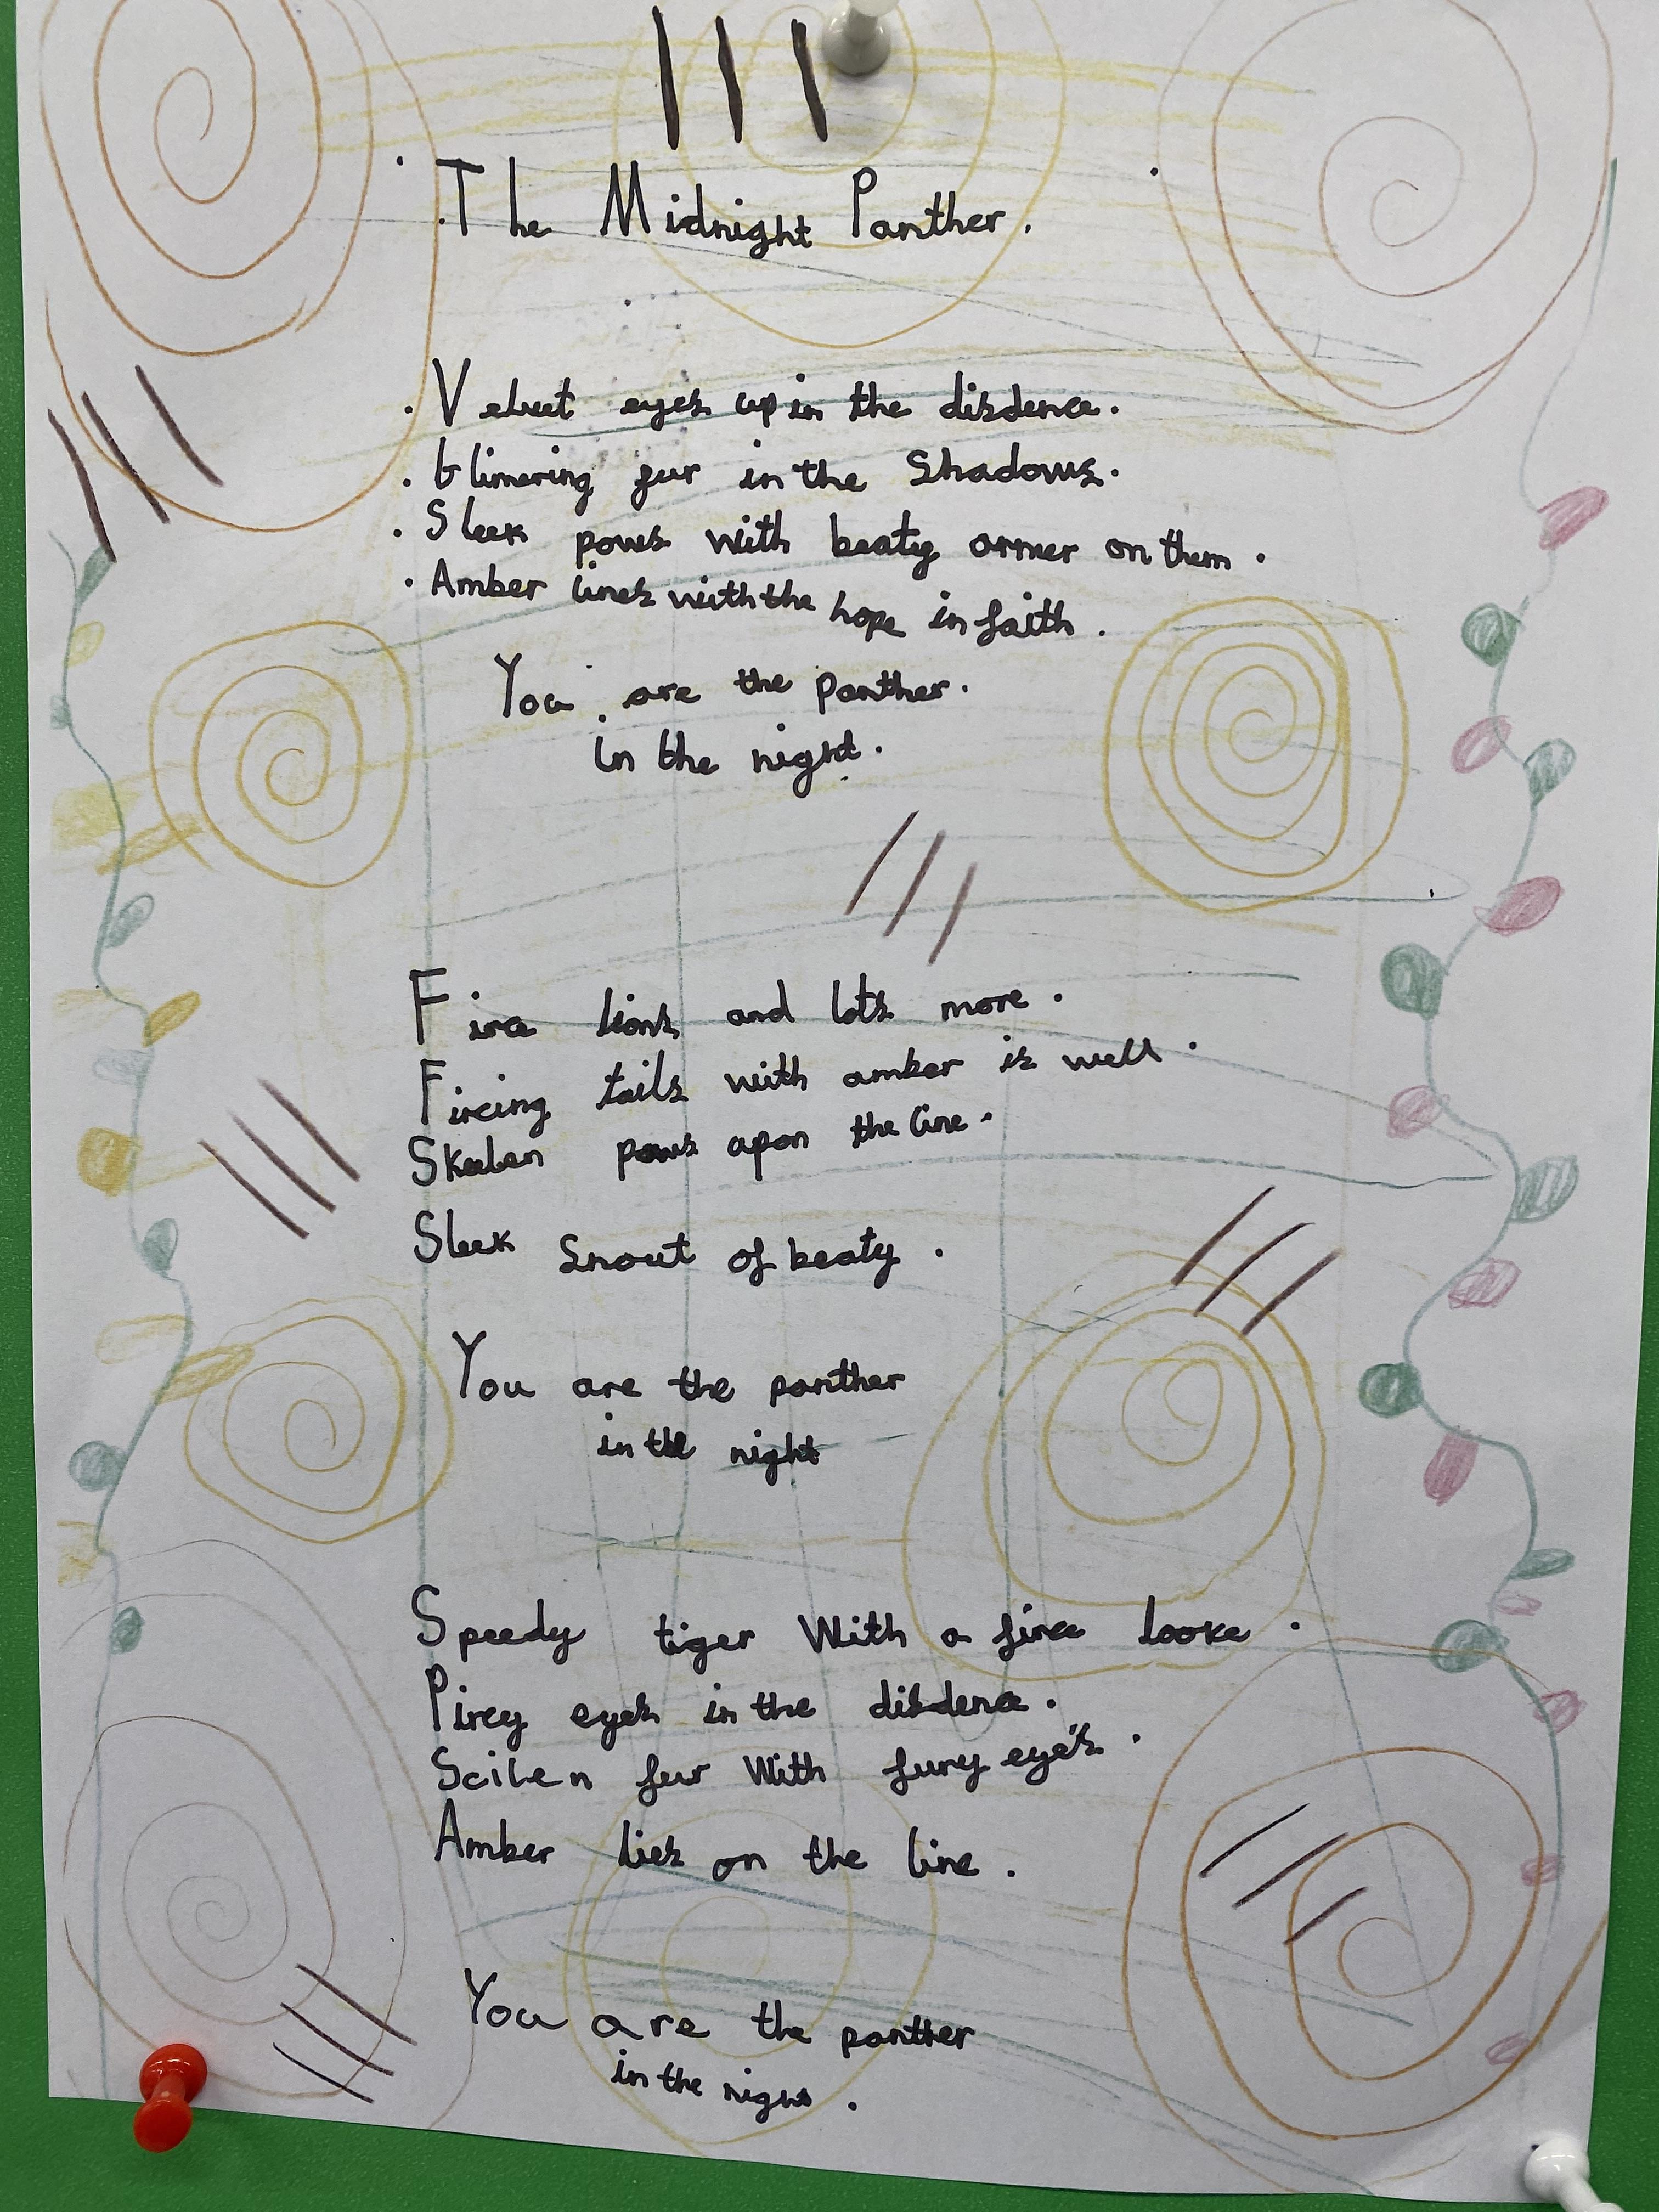 The Midnight Panther.
Velvet eyes up in the disdence.
Glimering fur in the Shadows.
Sleek paws with beaty armer on them.
Amber lines with the hope in faith.
You are the panther.
in the night.
Firce lions and lots more.
Fircing tails with amber is well.
Skeelen paws apon the line.
Sleek Snout of beaty.
You are the panther
in the night
Speedy tiger With a firce looke.
Pircy eyes in the disdence.
Scilen fur With fury eye's.
Amber lies on the line.
You are the panther
in the night.